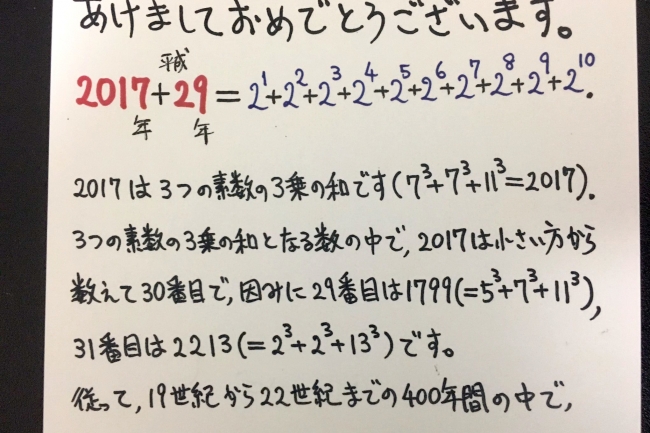 あけましておめでとうございます。
平成
2017+29=2¹+2²+2³+2⁴+2⁵+2⁶+2⁷+2⁸+2⁹+2¹⁰.
年 年
2017は3つの素数の3乗の和です(7³+7³+11³=2017).
3つの素数の3乗の和となる数の中で,2017は小さい方から
数えて30番目で,因みに29番目は1799(=5³+7³+11³),
31番目は2213(=2³+2³+13³)です。
従って,19世紀から22世紀までの400年間の中で,